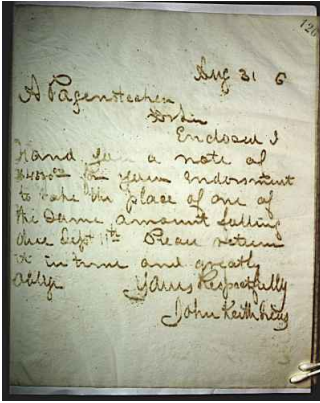 126
Aug 31 6
A Pagenstecher
Dr Sir
Enclosed I
Hand you a note of
for your Endorsment
to take the place of one of
the Same amount falling
due Sept 11th Please return
it in time and greatly
oblige Yours Respectfully
John Keith